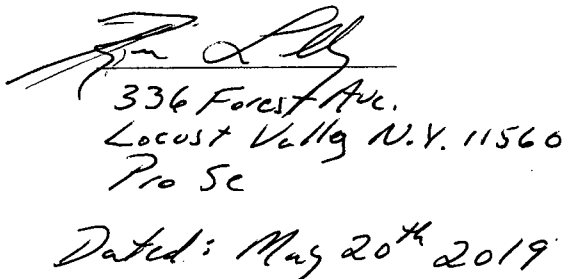 336 Forest Ave.
Locust Vally N.Y. 11560
Pro Se
Dated: May 20th 2019